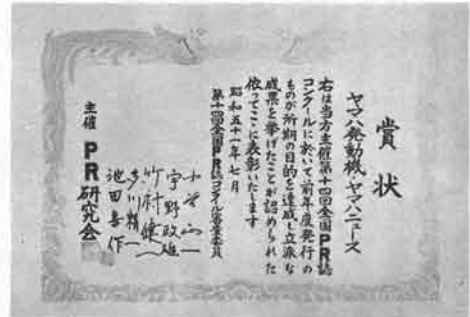 賞状
ヤマハ発動機・ヤマハニュース
右は当方主催第十四回全国PR誌
コンクールに於いて前年度発行の
ものが所期の目的を達成し立派な
成果を挙げたことが認められた
依ってここに表彰いたします
昭和五十一年七月
第十四回全国PR誌コンクール審査委員
宇野政雄
竹村健一
池田喜作
主催 PR研究会